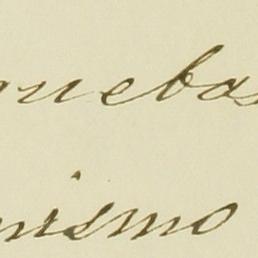 quebas
mismo